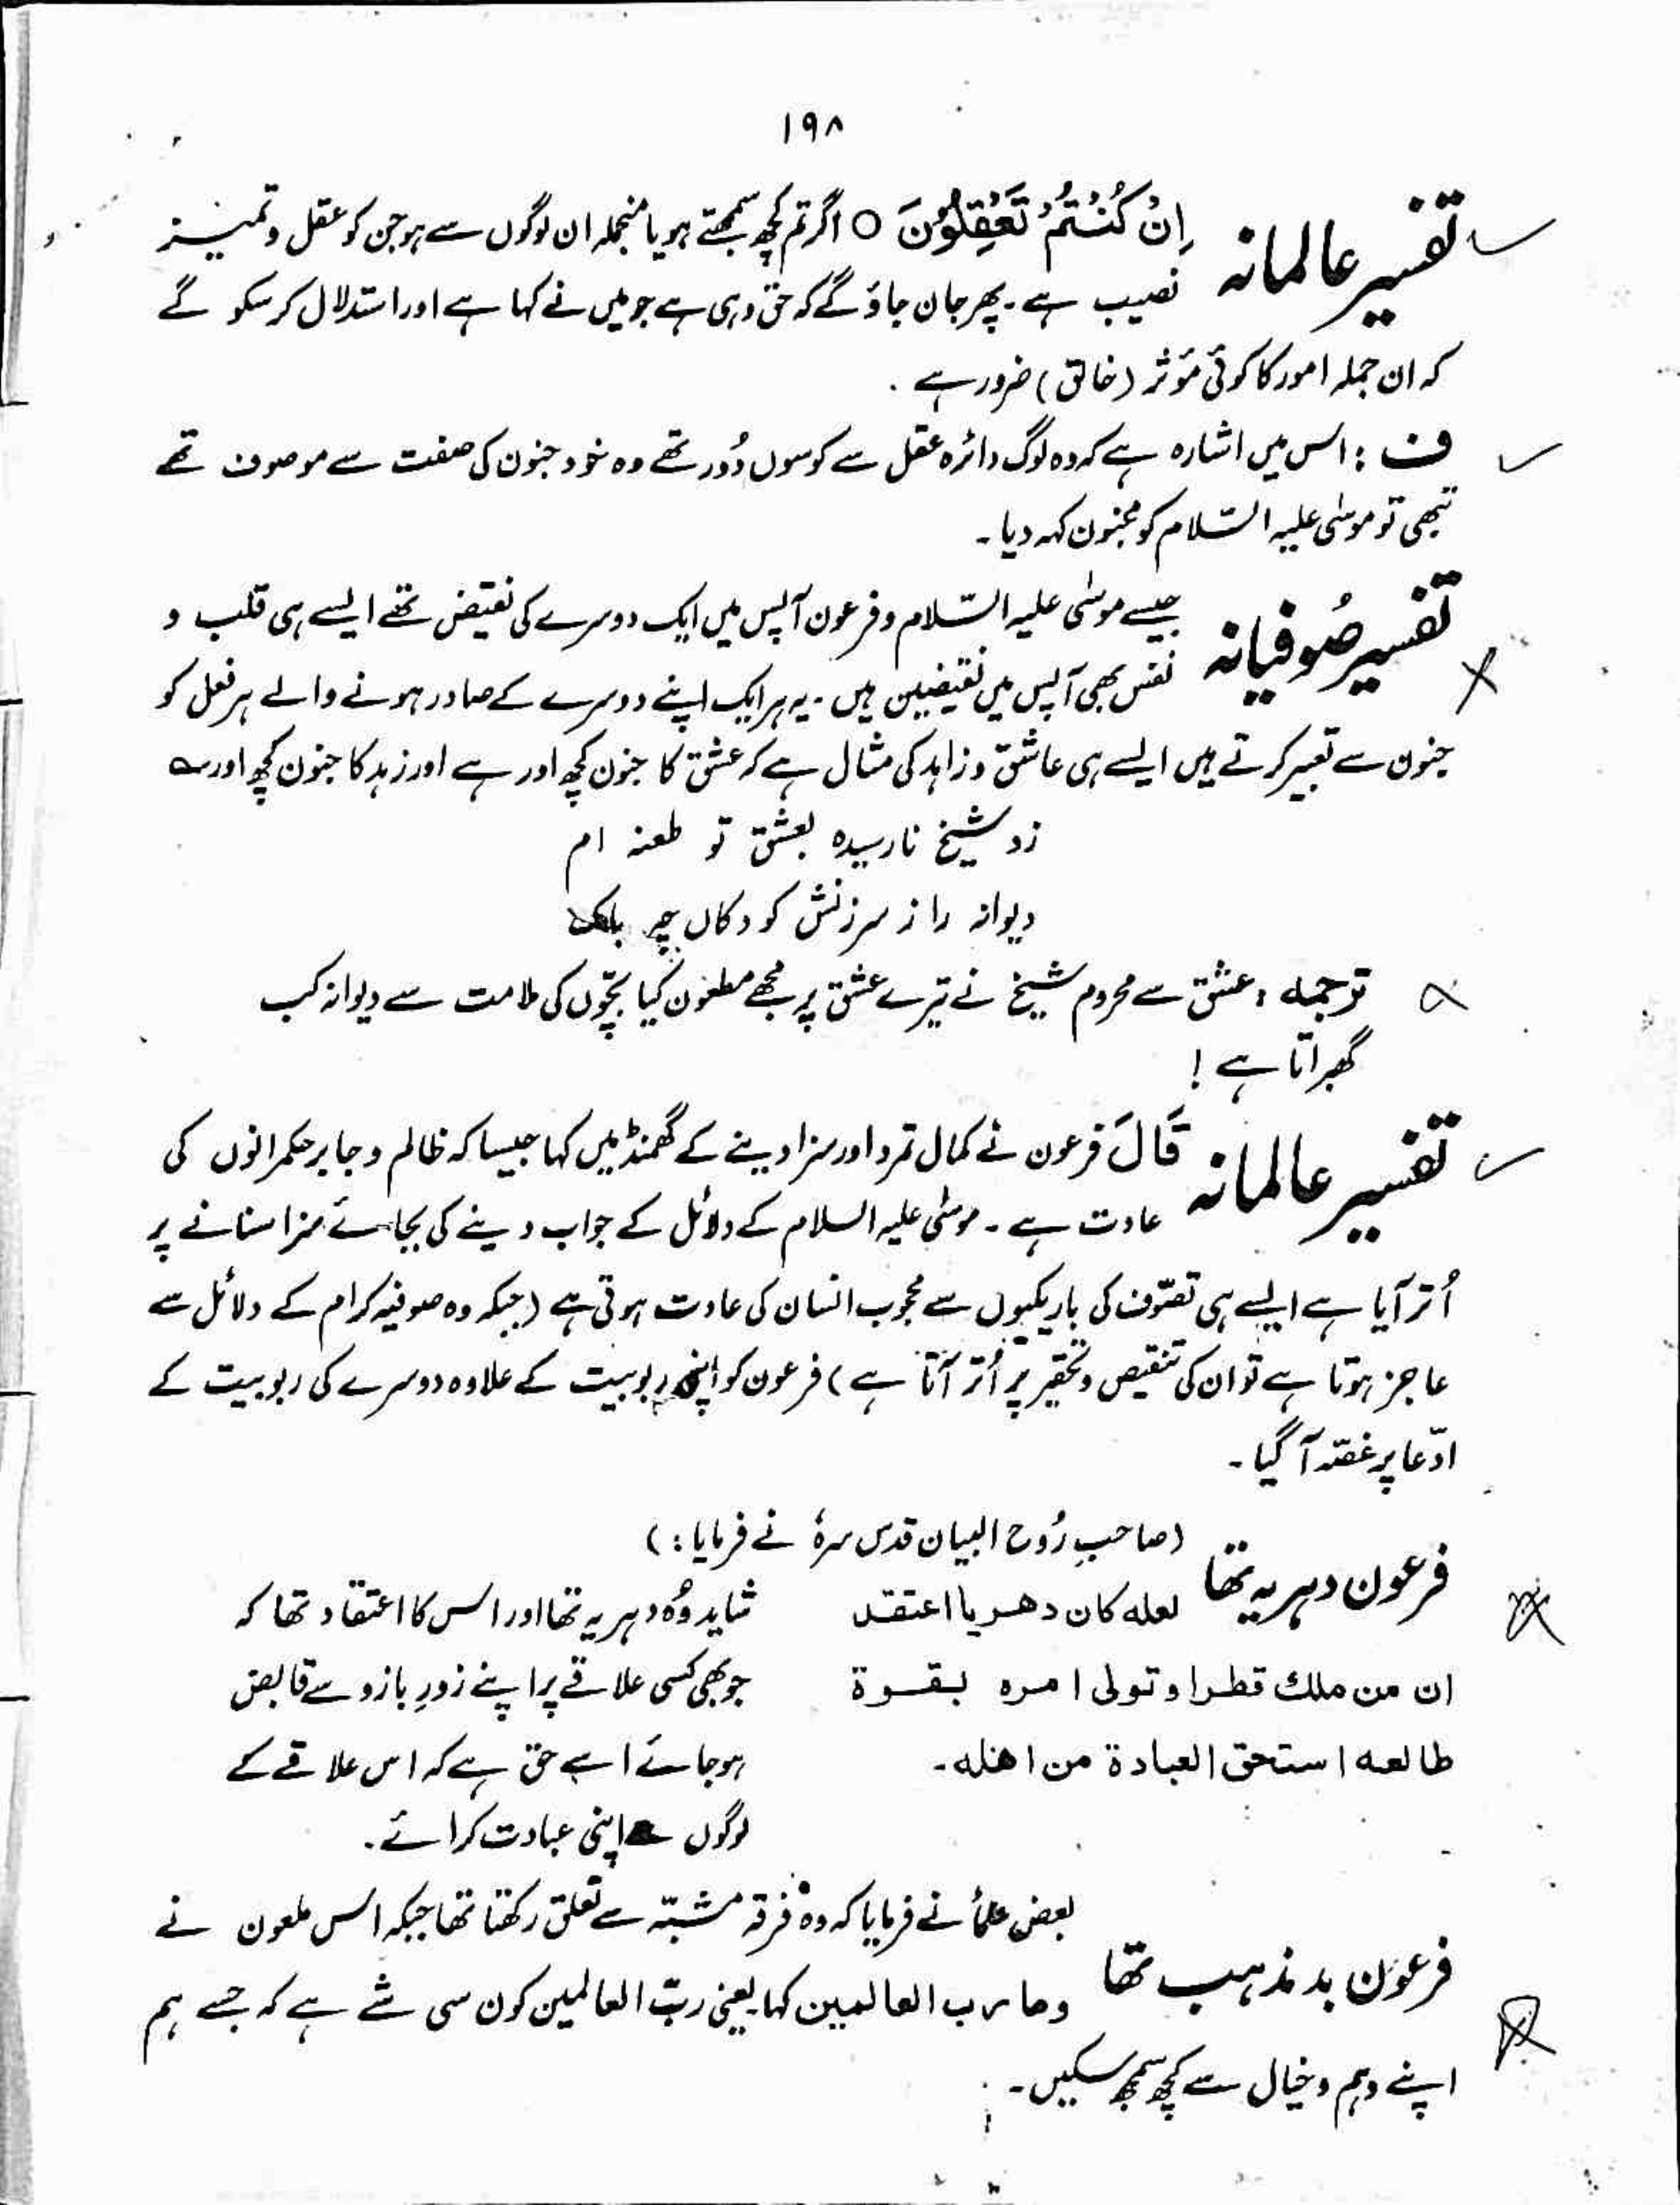 ۱۹۸
تفسیر عالمانہ اِنْ كُنْتُمْ تَعْقِلُوْنَ ○ اگر تم کچھ سمجھتے ہو یا منجملہ ان لوگوں سے ہو جن کو عقل و تمیز
نصیب ہے۔ پھر جان جاؤ گے کہ حق وہی ہے جو میں نے کہا ہے اور استدلال کر سکو گے
کہ ان جملہ امور کا کوئی مؤثر (خالق) ضرور ہے ۔
ف : اس میں اشارہ ہے کہ وہ لوگ دائرہ عقل سے کوسوں دُور تھے وہ خود جنون کی صفت سے موصوف تھے
تبھی تو موسٰی علیہ السّلام کو مجنون کہہ دیا ۔
تفسیر صُوفیانہ جیسے موسٰی علیہ السّلام و فرعون آپس میں ایک دوسرے کی نقیض تھے ایسے ہی قلب و
نفس بھی آپس میں نقیضین ہیں ۔ یہ ہر ایک اپنے دوسرے کے صادر ہونے والے ہر فعل کو
جنون سے تعبیر کرتے ہیں ایسے ہی عاشق و زاہد کی مثال ہے کہ عشق کا جنون کچھ اور ہے اور زہد کا جنون کچھ اور ؎
زد شیخ نارسیدہ بعشق تو طعنہ ام
دیوانہ را ز سرزنش کودکاں چہ باک
ترجمہ : عشق سے محروم شیخ نے تیرے عشق پر مجھے مطعون کیا بچّوں کی ملامت سے دیوانہ کب
گھبراتا ہے !
تفسیر عالمانہ قَالَ فرعون نے کمال تمرد اور سزا دینے کے گھمنڈ میں کہا جیسا کہ ظالم و جابر حکمرانوں کی
عادت ہے ۔ موسٰی علیہ السلام کے دلائل کے جواب دینے کی بجائے سزا سنانے پر
اُتر آیا ہے ایسے ہی تصوّف کی باریکیوں سے محجوب انسان کی عادت ہوتی ہے (جبکہ وہ صوفیہ کرام کے دلائل سے
عاجز ہوتا ہے تو ان کی تنقیص و تحقیر پر اُتر آتا ہے) فرعون کو اپنی ربوبیت کے علاوہ دوسرے کی ربوبیت کے
ادّعا پر غصّہ آ گیا ۔
فرعون دہریہ تھا (صاحبِ رُوح البیان قدس سرہٗ نے فرمایا : )
لعله كان دهريا اعتقد
ان من ملك قطرا وتولى امره بقوة
طالعه استحق العبادة من اهله۔
شاید وُہ دہریہ تھا اور اس کا اعتقاد تھا کہ
جو بھی کسی علاقے پر اپنے زورِ بازو سے قابض
ہو جائے اسے حق ہے کہ اس علاقے کے
لوگوں سے اپنی عبادت کرائے ۔
فرعون بد مذہب تھا بعض علمأ نے فرمایا کہ وہ فرقہ مشبّہ سے تعلق رکھتا تھا جبکہ اس ملعون نے
وما رب العالمين کہا یعنی ربّ العالمین کون سی شے ہے کہ جسے ہم
اپنے وہم و خیال سے کچھ سمجھ سکیں ۔